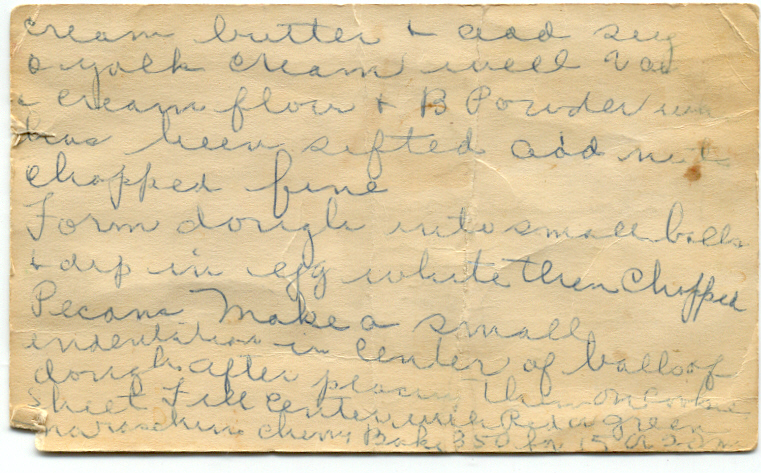 cream butter + add sug
yolk cream well
cream flour + B Powder
has been sifted add nuts
chopped fine
Form dough into small balls
+ dip in egg white then chopped
Pecans Make a small
indentation in center of balls of
dough after placing them on cookie
sheet Fill center with Red or green
maraschino cherry Bake 350 for 15